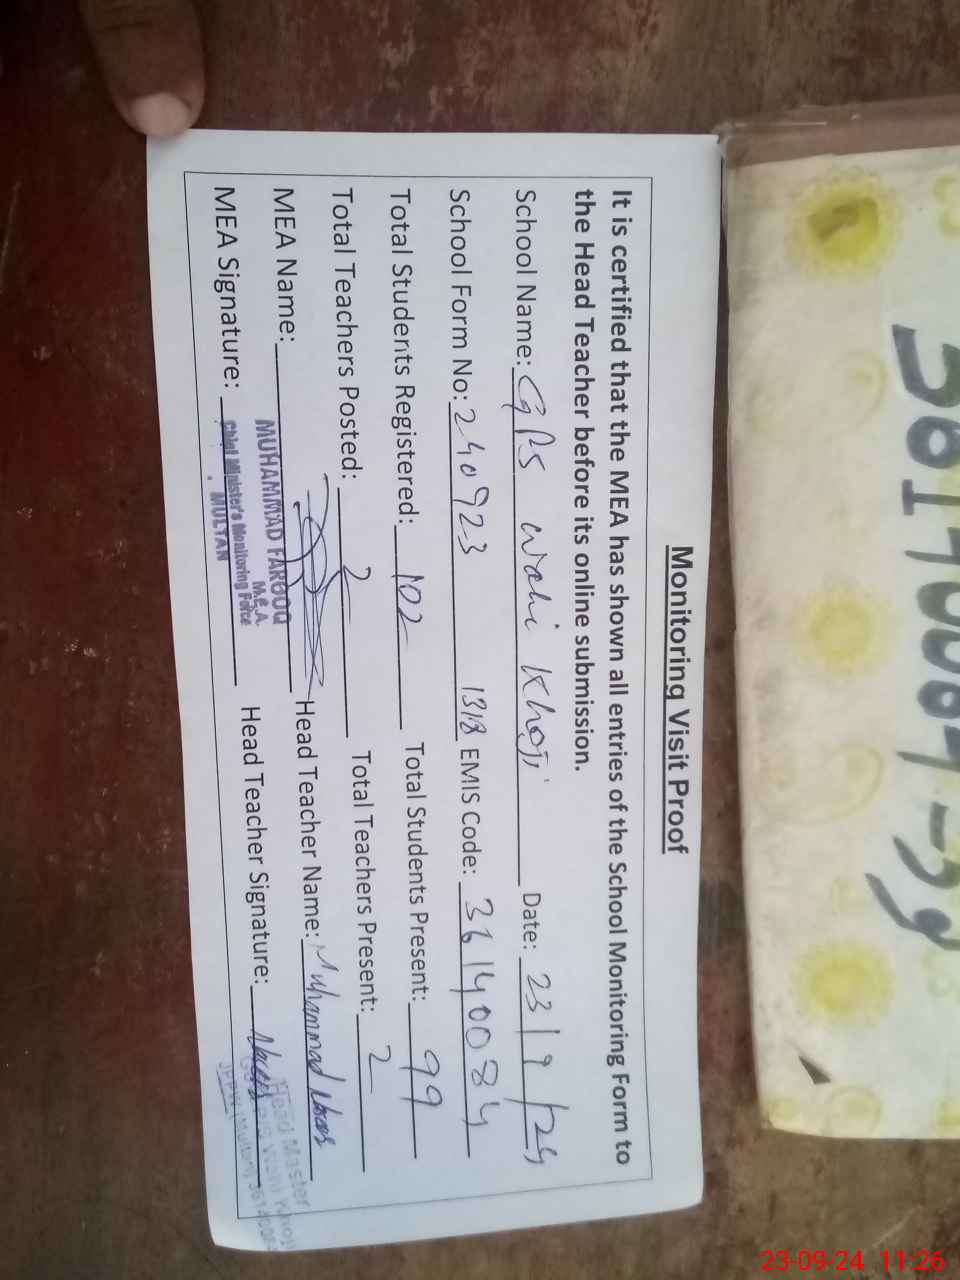 Monitoring Visit Proof
It is certified that the MEA has shown all entries of the School Monitoring Form to
the Head Teacher before its online submission.
School Name: GPS wahi Khoji Date: 23/9/24
School Form No: 240923 1318 EMIS Code: 36140084
Total Students Registered: 102 Total Students Present: 99
Total Teachers Posted: 2 Total Teachers Present: 2
MEA Name: Head Teacher Name: Muhammad Abbas
MUHAMMAD FAROOQ
M.E.A.
MEA Signature: Head Teacher Signature:
Chief Minister's Monitoring Force
MULTAN
Head Master
Wahi Khoji
JPPW (Multan)
23-09-24 11:26